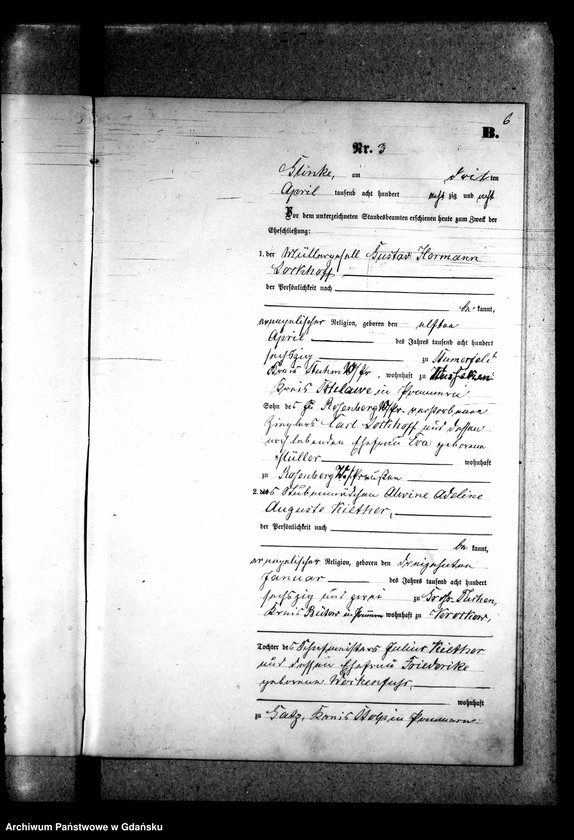 6
B.
Nr. 3
Glinke, am dritten
April tausend acht hundert achtzig und acht
Vor dem unterzeichneten Standesbeamten erschienen heute zum Zweck der
Eheschließung:
1. der Müllergesell Gustav Hermann
der Persönlichkeit nach
be kannt,
evangelischer Religion, geboren den elften
April des Jahres tausend acht hundert
sechszig zu
Kreis Stuhm W/Pr., wohnhaft zu
Kreis in Pommern
Sohn des zu Rosenberg W/Pr. verstorbenen
Zieglers Carl und dessen
noch lebenden Ehefrau Eva geborene
Müller wohnhaft
zu Rosenberg W/Preußen
2. des Stubenmädchen Alwine Adeline
Auguste Kiether,
der Persönlichkeit nach
be kannt,
evangelischer Religion, geboren den dreizehnten
Januar des Jahres tausend acht hundert
sechszig und zwei zu Groß Tuchen,
Kreis Bütow in Pommern wohnhaft zu
Tochter des Schafmeisters Julius Kiether
und dessen Ehefrau Friederike
geborene
wohnhaft
zu Gatz, Kreis Stolp in Pommern.
Archiwum Państwowe w Gdańsku